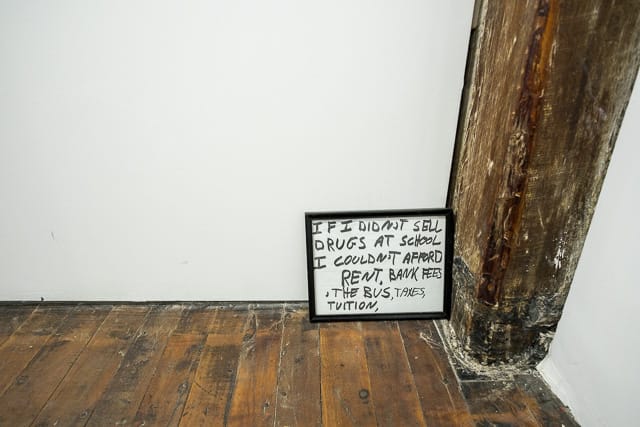 IF I DIDN'T SELL
DRUGS AT SCHOOL
I COULDN'T AFFORD
RENT, BANK FEES
, THE BUS, TAXES,
TUITION,